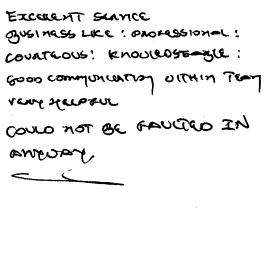 EXCELLENT SERVICE
BUSINESS LIKE : PROFESSIONAL :
COURTEOUS : KNOWLEDGEABLE :
GOOD COMMUNICATION WITHIN TEAM
VERY HELPFUL
COULD NOT BE FAULTED IN
ANYWAY